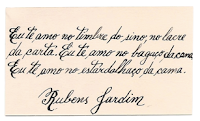 Eu te amo no timbre do sino, no lacre
da carta. Eu te amo no bagaço da cana
Eu te amo no estardalhaço da cama.
Rubens Jardim